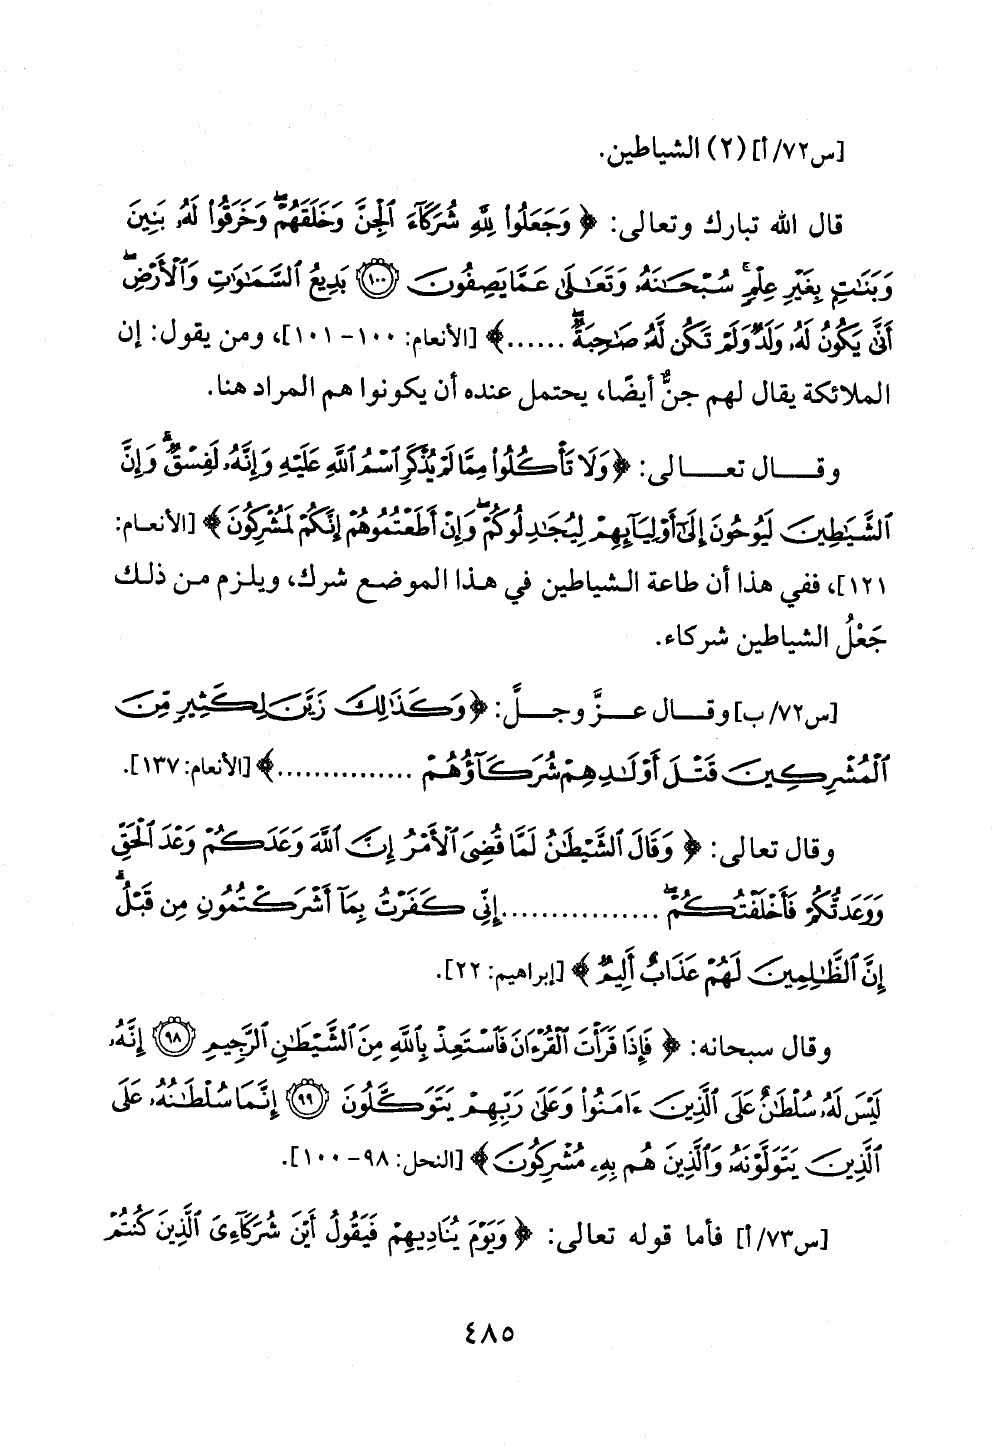 [س٧٢/أ] (٢) الشياطين.
قال الله تبارك وتعالى: ﴿ وَجَعَلُوا۟ لِلَّهِ شُرَكَآءَ ٱلْجِنَّ وَخَلَقَهُمْ ۖ وَخَرَقُوا۟ لَهُۥ بَنِينَ
وَبَنَٰتٍۭ بِغَيْرِ عِلْمٍ ۚ سُبْحَٰنَهُۥ وَتَعَٰلَىٰ عَمَّا يَصِفُونَ ﴿١٠٠﴾ بَدِيعُ ٱلسَّمَٰوَٰتِ وَٱلْأَرْضِ ۖ
أَنَّىٰ يَكُونُ لَهُۥ وَلَدٌ وَلَمْ تَكُن لَّهُۥ صَٰحِبَةٌ ۖ ......﴾ [الأنعام: ١٠٠- ١٠١]، ومن يقول: إن
الملائكة يقال لهم جنٌّ أيضًا، يحتمل عنده أن يكونوا هم المراد هنا.
وقال تعالى: ﴿ وَلَا تَأْكُلُوا۟ مِمَّا لَمْ يُذْكَرِ ٱسْمُ ٱللَّهِ عَلَيْهِ وَإِنَّهُۥ لَفِسْقٌ ۗ وَإِنَّ
ٱلشَّيَٰطِينَ لَيُوحُونَ إِلَىٰٓ أَوْلِيَآئِهِمْ لِيُجَٰدِلُوكُمْ ۖ وَإِنْ أَطَعْتُمُوهُمْ إِنَّكُمْ لَمُشْرِكُونَ ﴾ [الأنعام:
١٢١]، ففي هذا أن طاعة الشياطين في هذا الموضع شرك، ويلزم من ذلك
جَعْلُ الشياطين شركاء.
[س٧٢/ ب] وقال عزَّ وجلَّ: ﴿ وَكَذَٰلِكَ زَيَّنَ لِكَثِيرٍ مِّنَ
ٱلْمُشْرِكِينَ قَتْلَ أَوْلَٰدِهِمْ شُرَكَآؤُهُمْ ...............﴾ [الأنعام: ١٣٧].
وقال تعالى: ﴿ وَقَالَ ٱلشَّيْطَٰنُ لَمَّا قُضِىَ ٱلْأَمْرُ إِنَّ ٱللَّهَ وَعَدَكُمْ وَعْدَ ٱلْحَقِّ
وَوَعَدتُّكُمْ فَأَخْلَفْتُكُمْ ۖ ................إِنِّى كَفَرْتُ بِمَآ أَشْرَكْتُمُونِ مِن قَبْلُ ۗ
إِنَّ ٱلظَّٰلِمِينَ لَهُمْ عَذَابٌ أَلِيمٌ ﴾ [إبراهيم: ٢٢].
وقال سبحانه: ﴿ فَإِذَا قَرَأْتَ ٱلْقُرْءَانَ فَٱسْتَعِذْ بِٱللَّهِ مِنَ ٱلشَّيْطَٰنِ ٱلرَّجِيمِ ﴿٩٨﴾ إِنَّهُۥ
لَيْسَ لَهُۥ سُلْطَٰنٌ عَلَى ٱلَّذِينَ ءَامَنُوا۟ وَعَلَىٰ رَبِّهِمْ يَتَوَكَّلُونَ ﴿٩٩﴾ إِنَّمَا سُلْطَٰنُهُۥ عَلَى
ٱلَّذِينَ يَتَوَلَّوْنَهُۥ وَٱلَّذِينَ هُم بِهِۦ مُشْرِكُونَ ﴾ [النحل: ٩٨- ١٠٠].
[س٧٣/أ] فأما قوله تعالى: ﴿ وَيَوْمَ يُنَادِيهِمْ فَيَقُولُ أَيْنَ شُرَكَآءِىَ ٱلَّذِينَ كُنتُمْ
٤٨٥